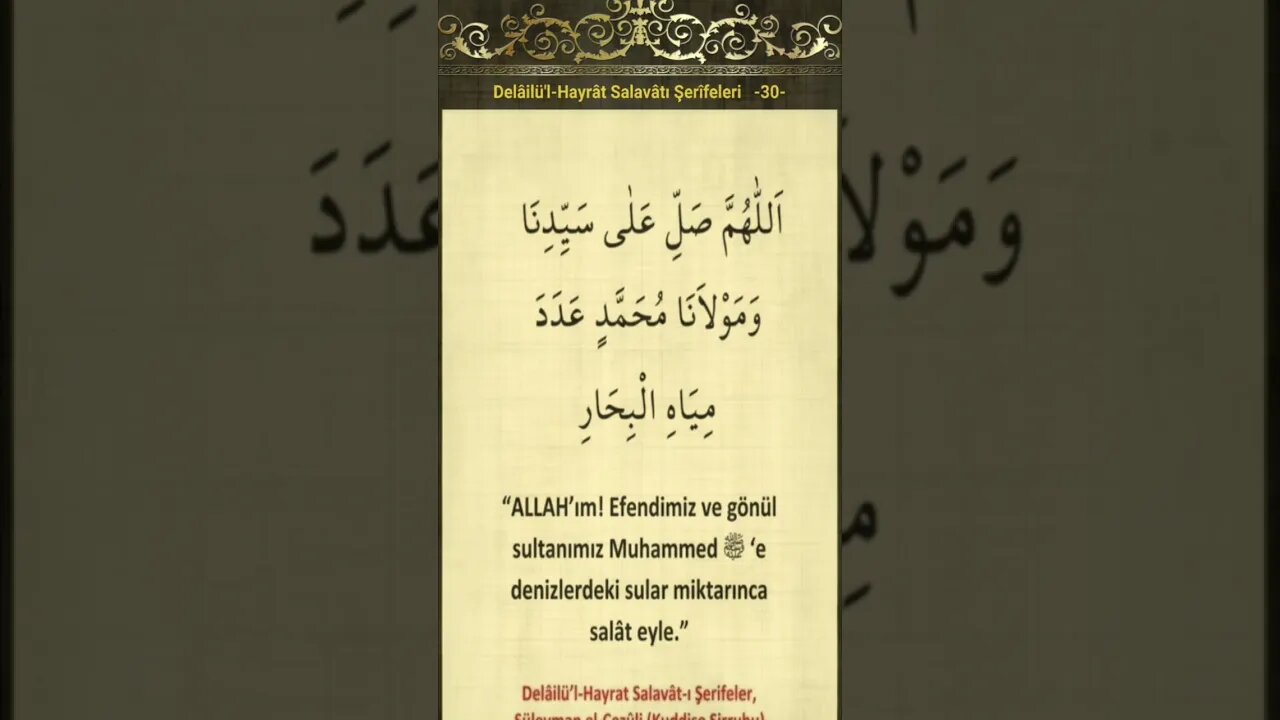 Delâilü'l-Hayrât Salavâtı Şerîfeleri -30-
اَللّٰهُمَّ صَلِّ عَلٰى سَيِّدِنَا
وَمَوْلَانَا مُحَمَّدٍ عَدَدَ
مِيَاهِ الْبِحَارِ
“ALLAH’ım! Efendimiz ve gönül
sultanımız Muhammed ﷺ ‘e
denizlerdeki sular miktarınca
salât eyle.”
Delâilü’l-Hayrat Salavât-ı Şerifeler,
Süleyman el-Cezûli (Kuddise Sirruhu)